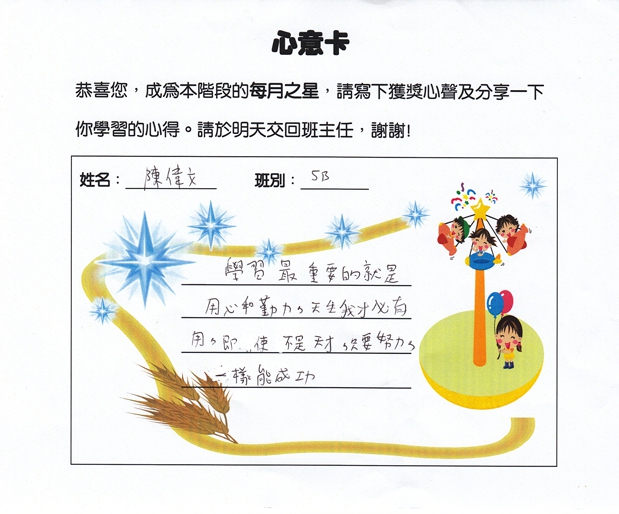 心意卡
恭喜您，成為本階段的每月之星，請寫下獲獎心聲及分享一下
你學習的心得。請於明天交回班主任，謝謝!
姓名：陳偉文 班別：5B
學習最重要的就是
用心和勤力，天生我才必有
用，即使不是天才，只要努力，
一樣能成功